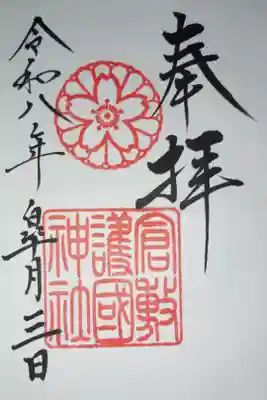 奉拝
倉敷
護國
神社
令和八年皐月三日